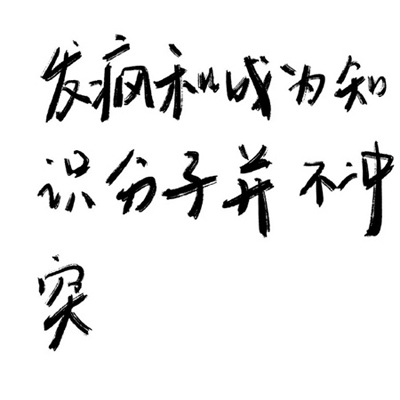 发疯和成为知
识分子并不冲
突